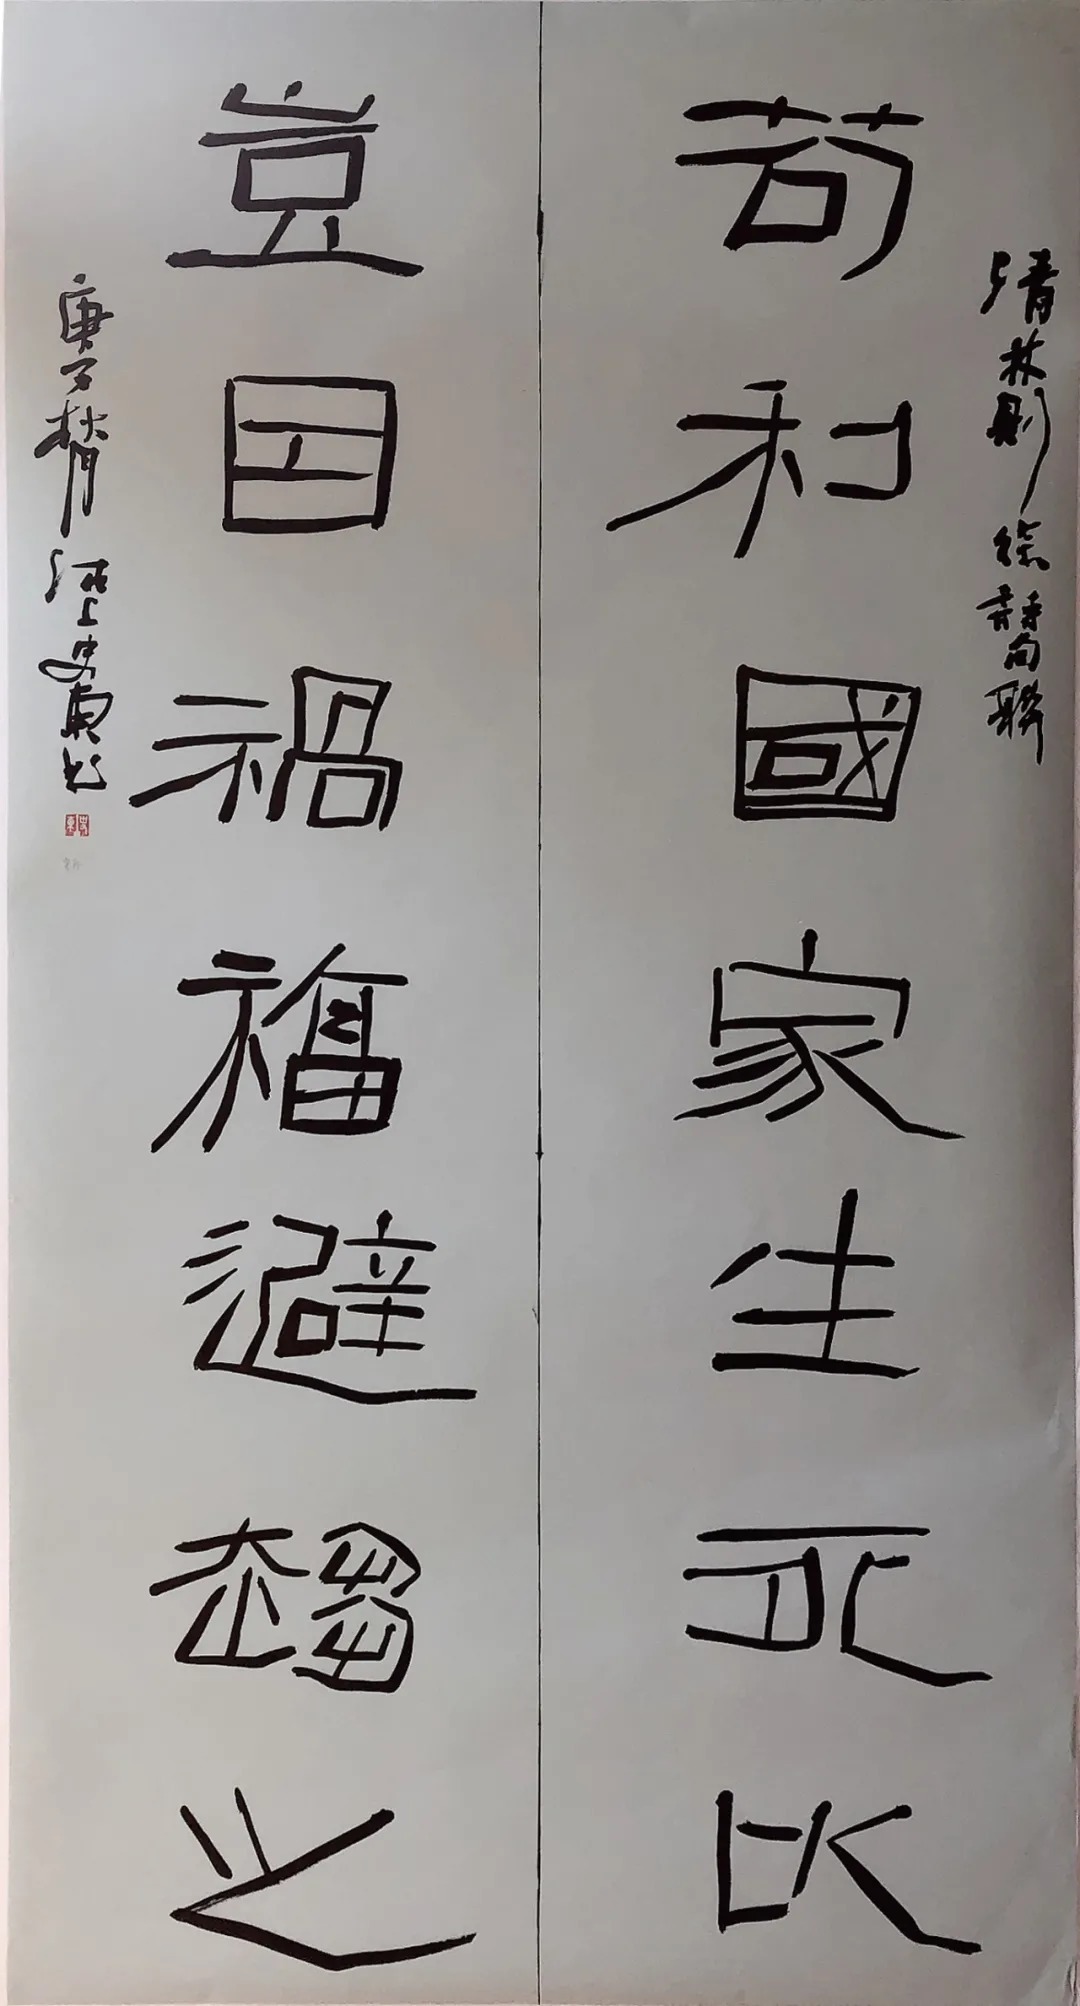 清林則徐詩句聯
苟利國家生死以
豈因禍福避趨之
庚子秋月